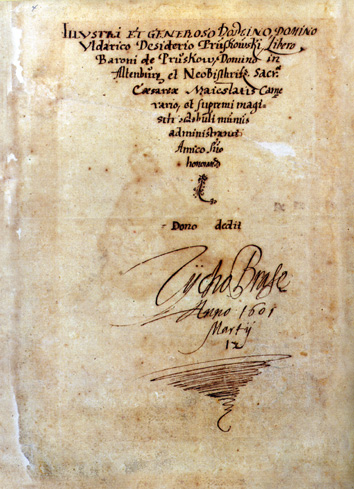 ILLVSTRI ET GENEROSO DOMINO, DOMINO
Vldarico Desiderio Pruskowski Libero
Baroni de Pruskow, Domino in
Altenburg et Neobistritz. Sacr.
Cæsareæ Maiestatis Came
rario, et supremi magi
stri stabuli munus
administranti
Amico suo
honorando
Dono dedit
Tÿcho Brahe
Anno 1601
Martij
12